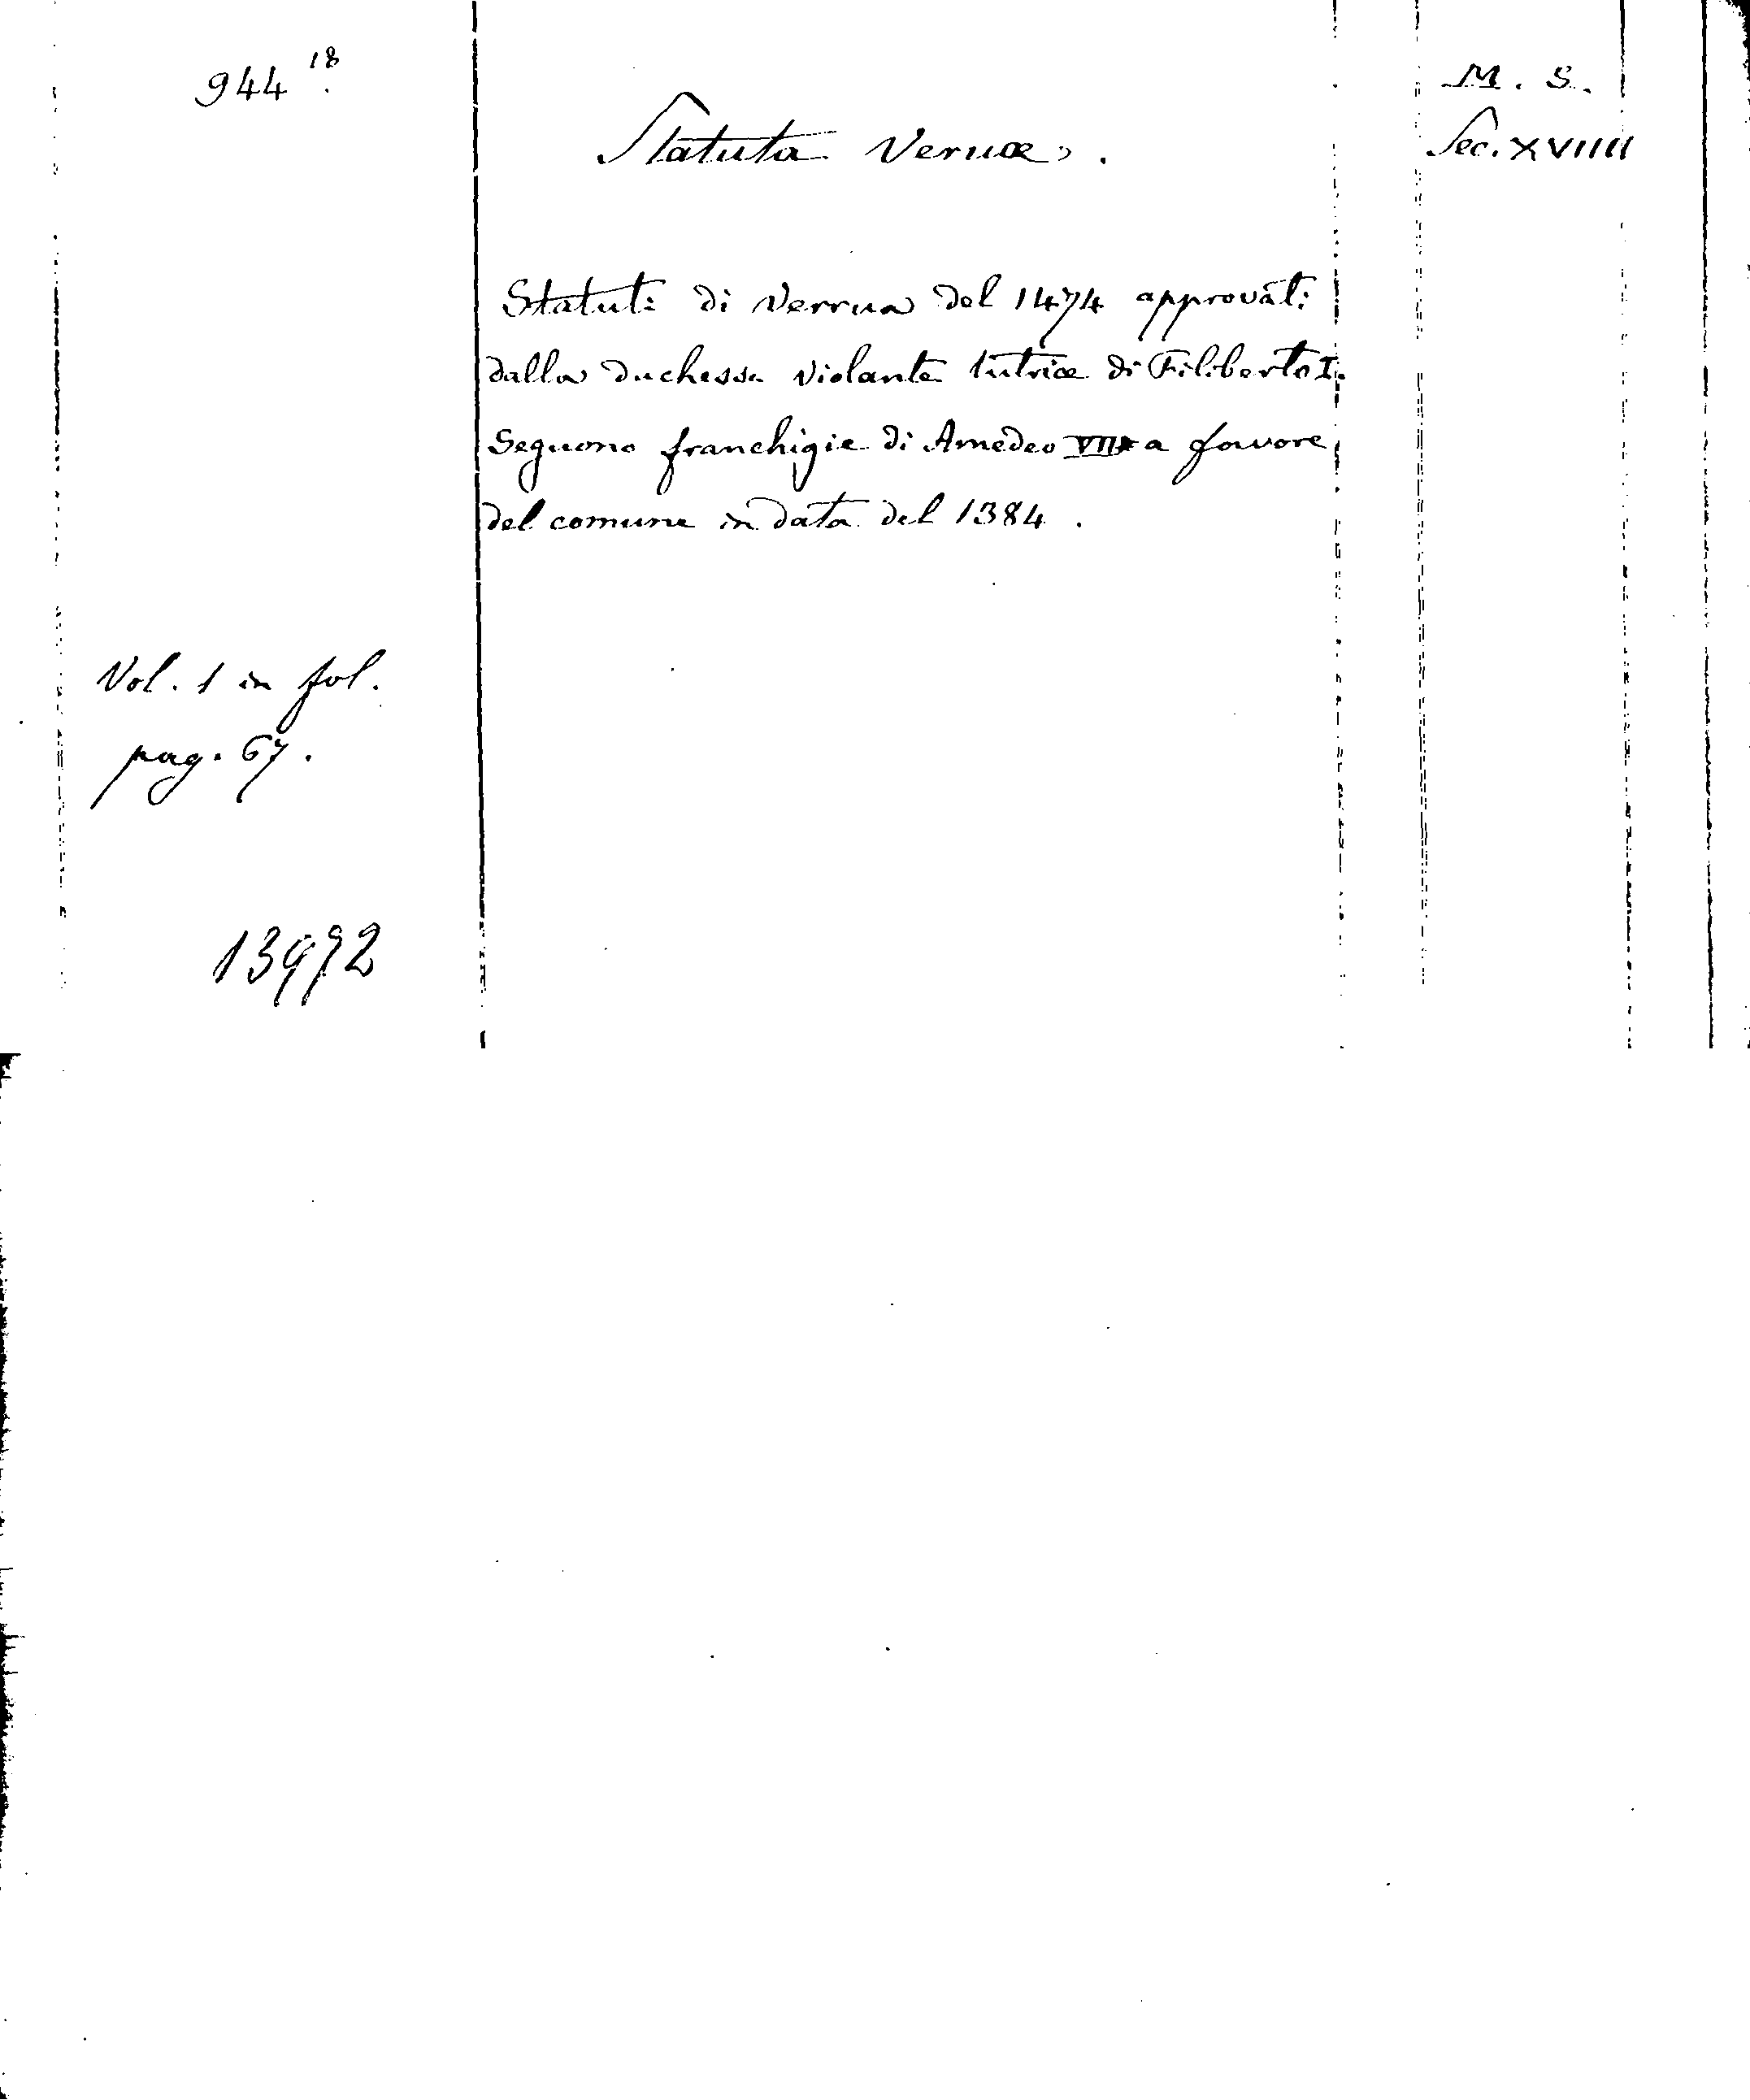 944 18.
M. S.
Sec. XVIIII
Statuta Veruæ.
Statuti di Verrua del 1474 approvati
dalla duchessa Violante tutrice di Filiberto I.
Seguono franchigie di Amedeo VII a favore
del comune in data del 1384.
Vol. 1 in fol.
pag. 67.
13992